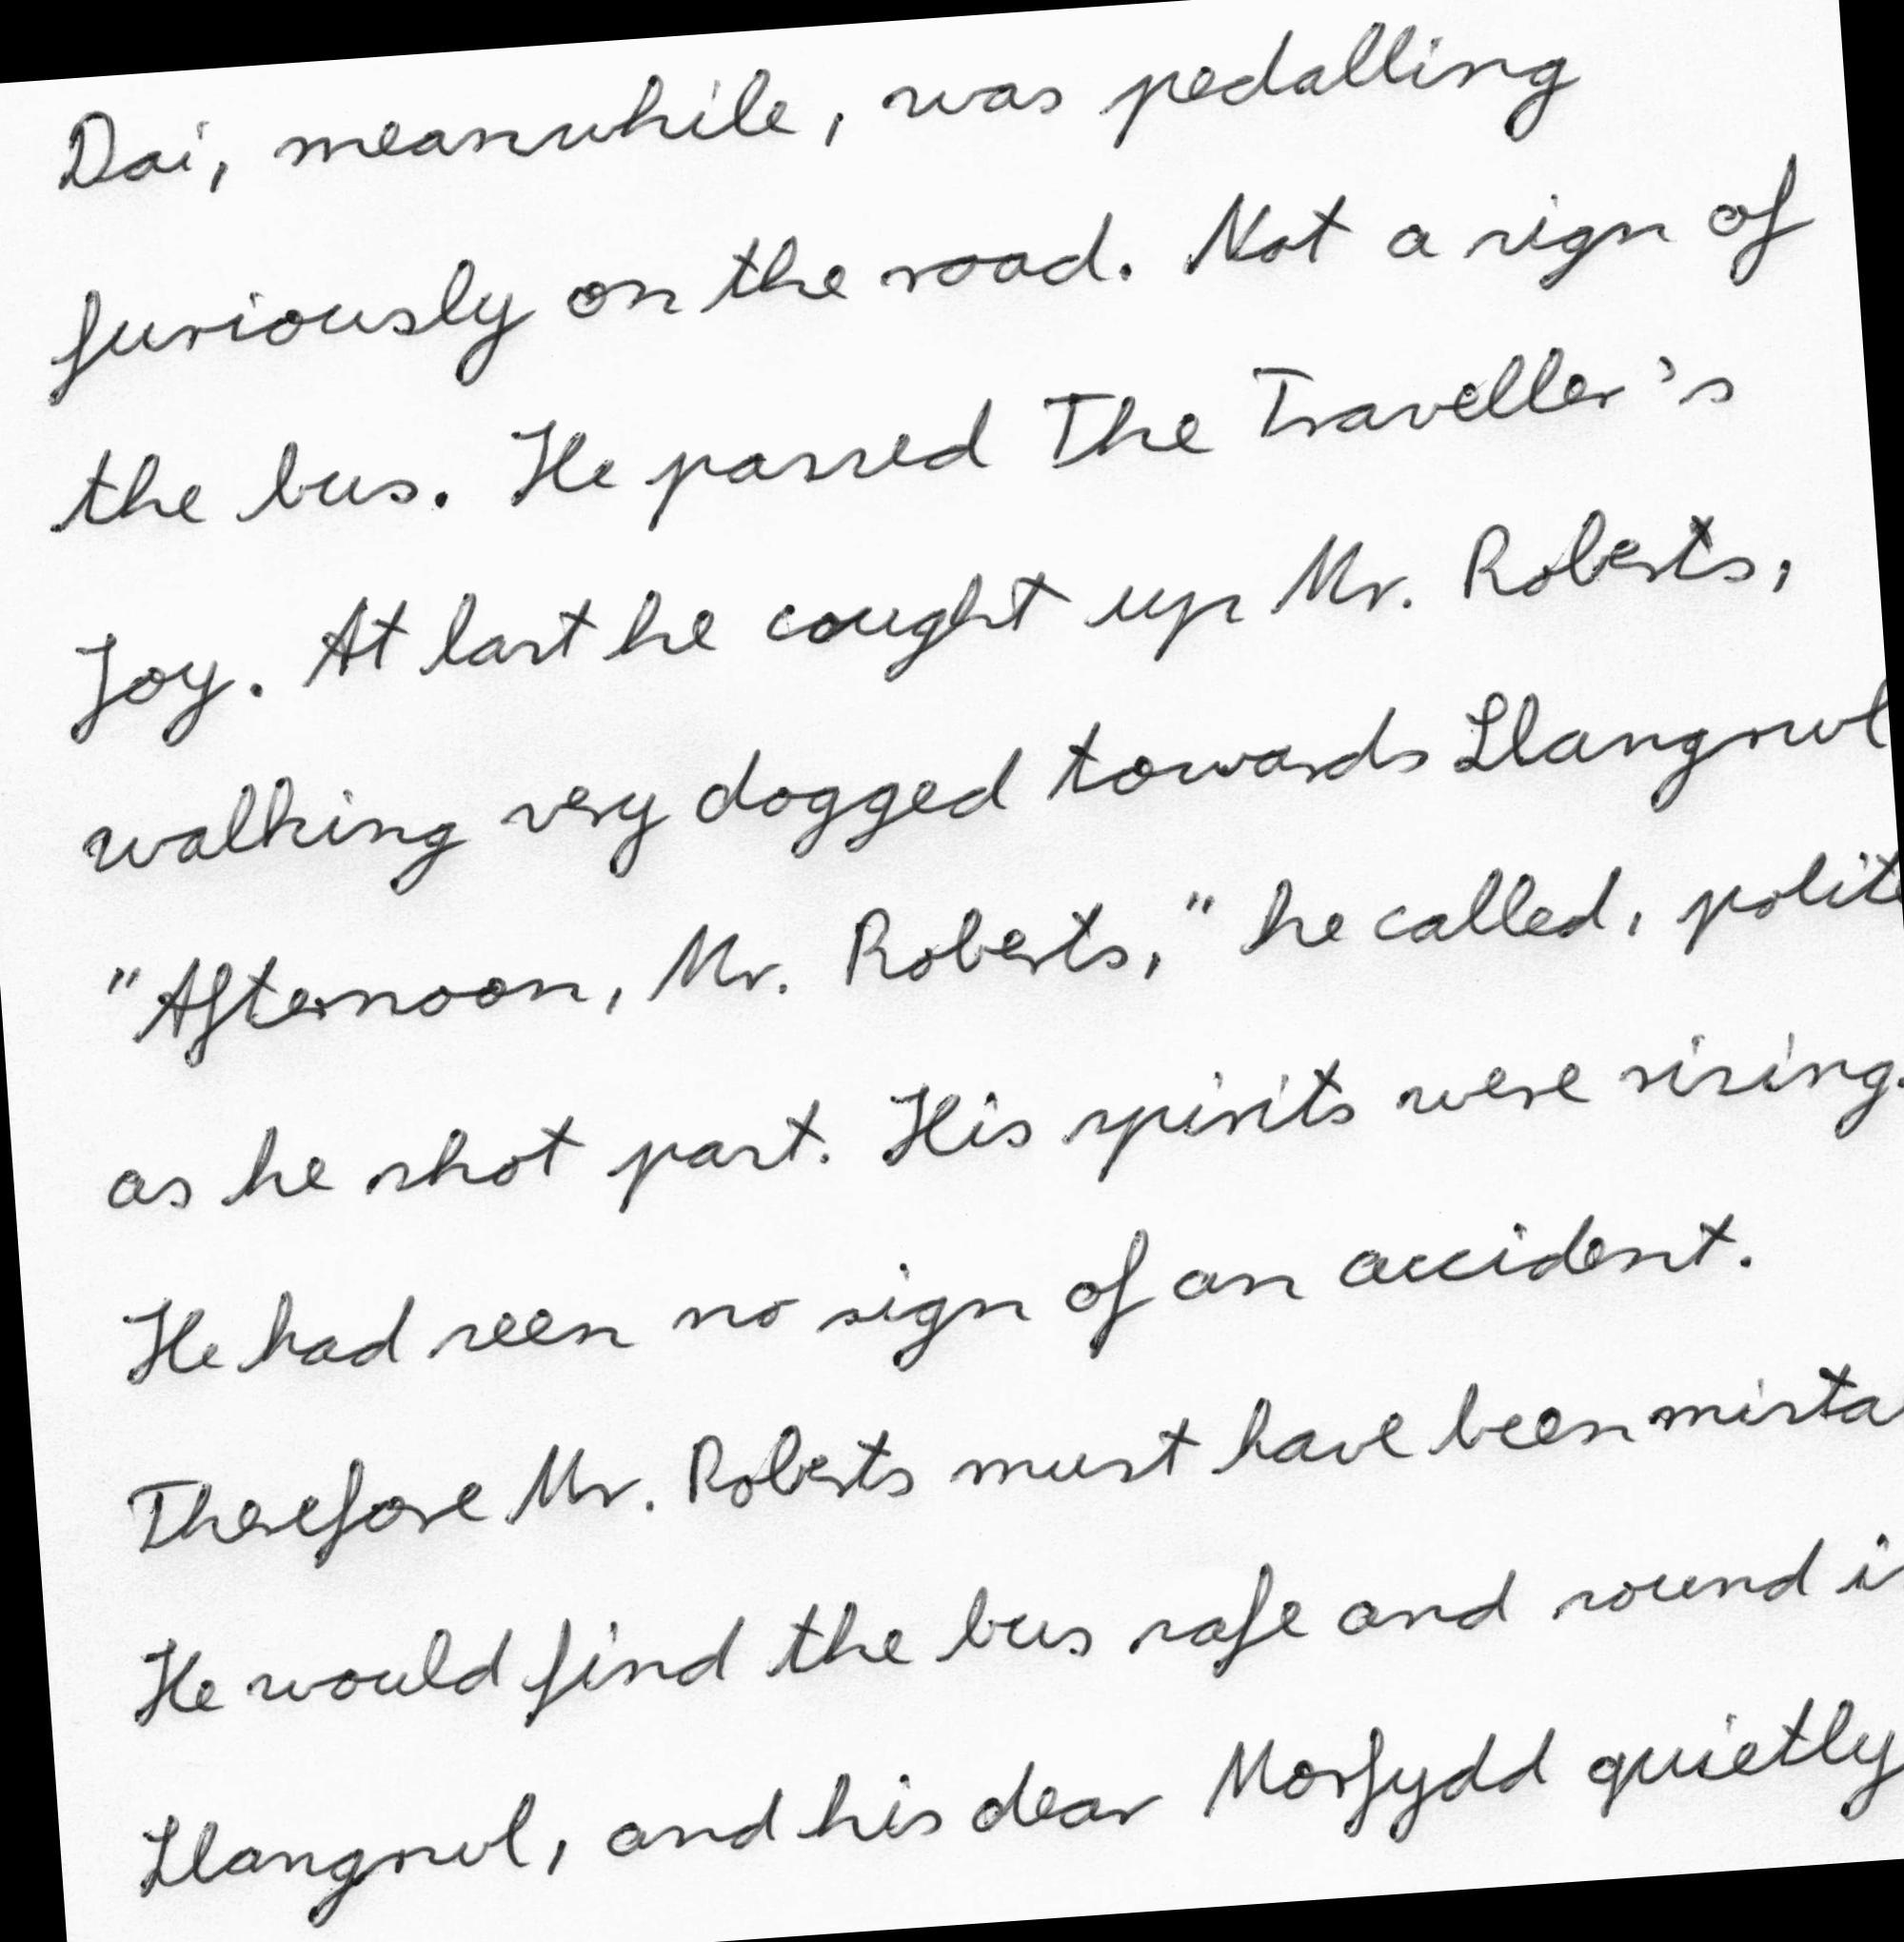 Dai, meanwhile, was pedalling
furiously on the road. Not a sign of
the bus. He passed The Traveller's
Joy. At last he caught up Mr. Roberts,
walking very dogged towards Llangrwl
"Afternoon, Mr. Roberts," he called, polite
as he shot past. His spirits were rising.
He had seen no sign of an accident.
Therefore Mr. Roberts must have been
He would find the bus safe and sound
Llangrwl, and his dear Morfydd quietly